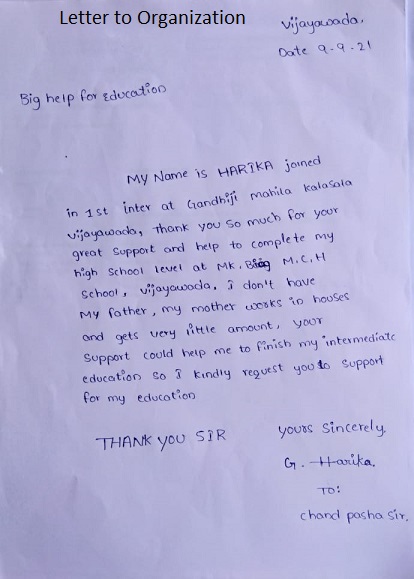 Letter to Organization
Vijayawada,
Date 9-9-21
Big help for Education
MY Name is HARIKA joined
in 1st inter at Gandhiji mahila kalasala
vijayawada, thank you so much for your
great support and help to complete my
high school level at MK. M.C.H
School, vijayawada. I don't have
My father, my mother works in houses
and gets very little amount, your
support could help me to finish my intermediate
education so I kindly request you to support
for my education
THANK YOU SIR
yours sincerely,
G. Harika.
TO:
chand pasha sir.